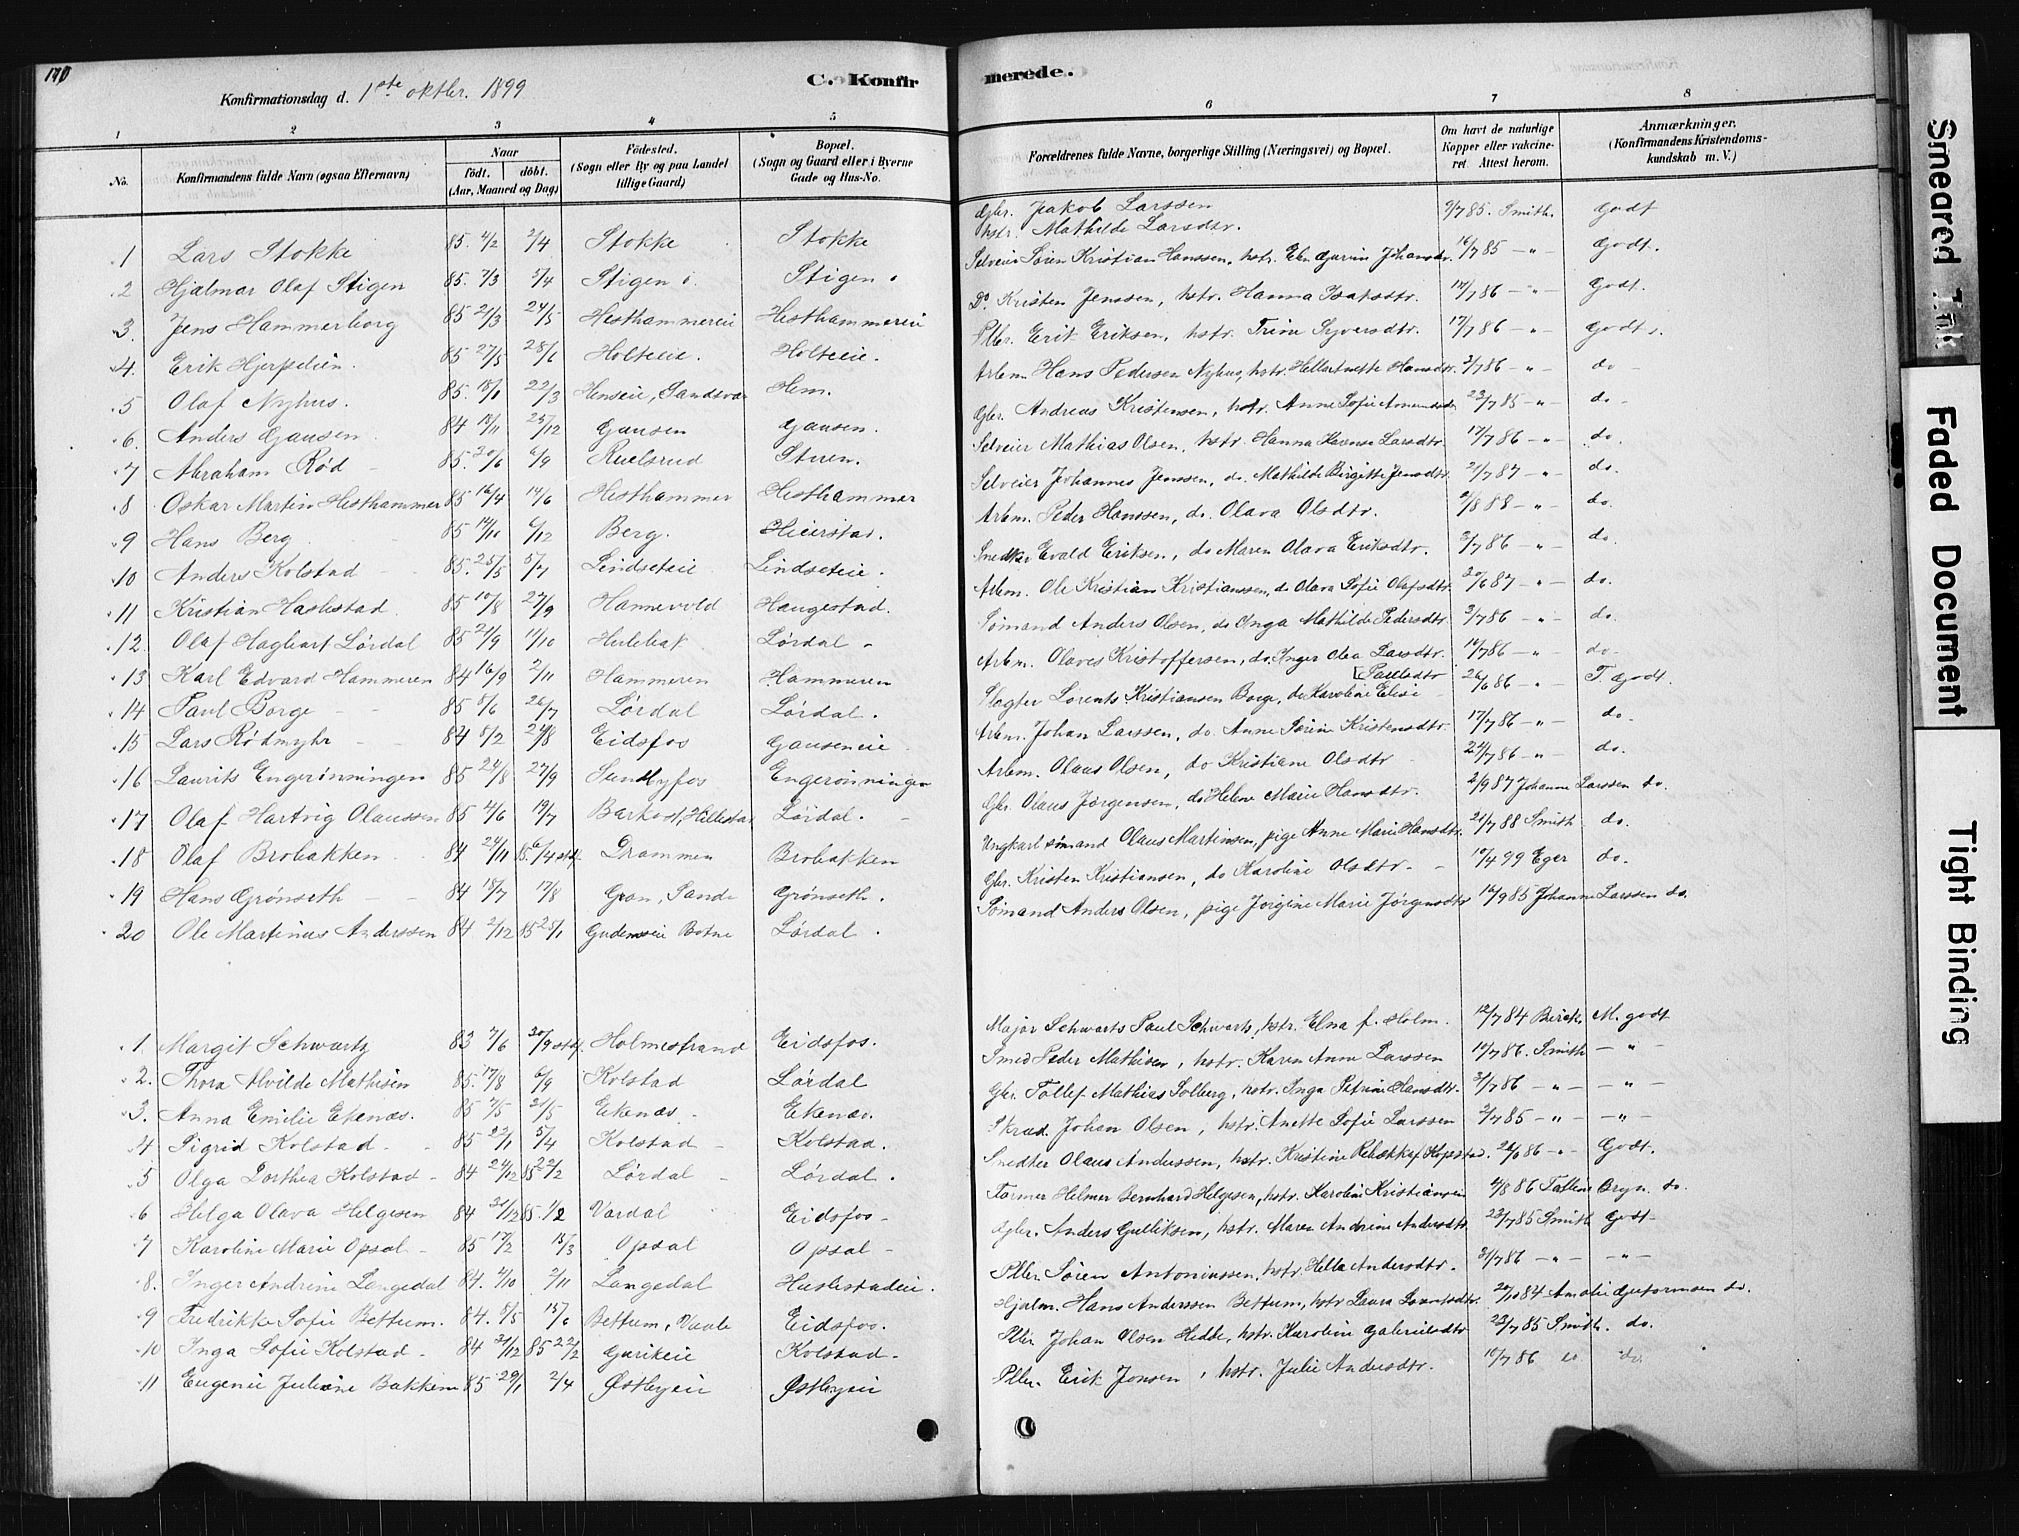 170
Konfirmationsdag d. 1ste oktbr. 1899
C. Konfirmerede.
1 2 3 4 5 6 7 8
No. Konfirmandens fulde Navn (ogsaa Efternavn) Naar født. døbt. (Aar, Maaned og Dag) Fødested. (Sogn eller By og paa Landet tillige Gaard) Bopæl. (Sogn og Gaard eller i Byerne Gade og Hus-No. Forældrenes fulde Navne, borgerlige Stilling (Næringsvei) og Bopæl. Om havt de naturlige Kopper eller vakcineret. Attest herom. Anmærkninger. (Konfirmandens Kristendomskundskab m. V.)
1 Lars Stokke 85. 4/2 2/4 Stokke Stokke Gbr. Jakob Larssen hstr. Mathilde Larsdtr. 9/7 85. Smith. Godt
2 Hjalmar Olaf Stigen 85. 7/3 5/4 Stigen ø. Stigen ø Selveier Søren Kristian Hanssen, hstr. 16/7 85 - " Godt.
3. Jens Hammerborg 85 21/3 24/5 Hesthammereie Hesthammereie Do. Kristen Jenssen, hstr. Hanna Isaksdtr. 12/7 86 - " - Godt.
4. Erik Hjerpelien. 85 27/5 28/6 Holteeie. Holteeie. Pller. Erik Eriksen, hstr. Trine Syversdtr. 17/7 86 - " Godt.
5 Olaf Nyhus. 85. 22/3 Henseie, Sandsvær Hem. Arbm. Hans Pedersen Nyhus, hstr. Hansdtr. 2/7 86 - " - do -
6. Anders Gausen 84 18/11 25/12 Gausen Gausen. Gbr. Andreas Kristensen, hstr. Anne Sofie 23/7 85 - " - do -
7 Abraham Rød 85. 20/6 6/9 Ruelsrud Sturen. Selveier Mathias Olsen, hstr. Hanna Larsdtr. 17/7 86 - " do.
8 Oskar Martin Hesthammer 85 16/4 14/6 Hesthammer Hesthammer Selveier Johannes Jenssen, do. Mathilde Birgitte Jensdtr. 21/7 87 - " do.
9 Hans Berg 85 14/10 6/12 Berg. Heierstad. Arbm. Peder Hanssen, do. Olava Olsdtr. 2/8 88 - " do.
10 Anders Kolstad 85. 25/5 5/7 Lindseteie Lindseteie. Snedker Evald Eriksen, do Maren Olava Eriksdtr. 3/7 86 - " do.
11 Kristian Haslestad. 85 10/8 27/9 Hannevold Haugestad. Arbm. Ole Kristian Kristianssen, do Olava Sofie Olafsdtr. 20/6 87 - " do.
12. Olaf Hagbart Lørdal 85 21/9 11/10 Hulebak Lørdal - Sømand Anders Olsen, do Inga Mathilde Pedersdtr. 2/7 86 - " do.
13 Karl Edvard Hammeren 84 16/9 2/11 Hammeren Hammeren Arbm. Olaves Kristoffersen, do. Inger Larsdtr. 16/7 86 - " do.
14 Paul Borge 85 5/6 26/7 Lørdal Lørdal. Slagter Lorents Kristiansen Borge, do Karoline Elise Paulsdtr 26/6 86 " T. godt.
15 Lars Rødmyhr 84 8/2 24/8 Eidsfos Gauseneie Arbm. Johan Larssen, do. Anne Sørine Kristensdtr. 17/7 86 - " - do.
16 Laurits Engerønningen 85 24/8 27/9 Sundbyfos Engerønningen Arbm. Olaus Olsen, do Kristiane Olsdtr 24/7 86 - " do.
17 Olaf Hartvig Olaussen 85 4/6 19/7 Barkost, Hillestad Lørdal. Gbr. Olaus Jørgensen, do Helene Marie Hansdtr. 2/9 87 Johanne Larssen do.
18 Olaf Brobakken 84 24/11 85. 6/4 stdf. Drammen Brobakken Ungkarl sømand Olaus Martinsen, pige Anne Marie Hansdtr. 21/7 88 Smith do.
19 Hans Grønseth 84 18/7 17/8 Gran, Sande Grønseth. Gbr. Kristen Kristiansen, do Karoline Olsdtr. 10/4 99 Eger do.
20 Ole Martinus Anderssen 84 2/12 85 25/1 Gudemseie Botne Lørdal. Sømand Anders Olsen, pige Jørgine Marie Jørgensdtr 16/9 85 Johanne Larssen do.
1. Margit Schwartz 83 7/6 30/9 stdf. Holmestrand Eidsfos. Major Schwarts Paul Schwarts, hstr. Elna f. Holm. 12/7 84 Birch. M. godt
2. Thora Alvilde Mathisen 85. 17/8 6/9 Kolstad Lørdal Smed Peder Mathisen, hstr. Karen Anne Larssen 14/7 86. Smith - " -
3. Anna Emilie Ekenæs. 85 7/5 31/5 Ekenæs. Ekenæs. Gbr. Tollef Mathias Solberg, hstr. Inga Petrine Hansdtr. 3/7 86 - " - - " -
4 Sigrid Kolstad 85 22/1 5/4 Kolstad Kolstad. Skræd. Johan Olsen, hstr. Anette Sofie Larssen 2/7 85 - " - - " -
5 Olga Dorthea Kolstad 84 24/12 85 22/2 Lørdal Lørdal. Snedker Olaus Anderssen, hstr. Kristine Rebekka 26/6 86 - " - Godt.
6 Helga Olava Helgesen 84 31/12 85. 1/2 Vardal Eidsfos- Former Helmer Bernhard Helgesen, hstr. Karoline Kristiansen 4/8 86 Bryn do.
7 Karoline Marie Opsal - 85 17/2 15/3 Opsal Opsal - Gbr. Anders Gulliksen, hstr. Maren Andrine Andersdtr. 23/7 85 Smith Godt-
8. Inger Andrine Langedal 84. 4/10 2/11 Langedal Haslestadeie. Pller. Søren Antoniussen, hstr. Helle Andersdtr. 3/7 86 - " - - " -
9 Fredrikke Sofie Bettum. 84. 5/5 15/6 Bettum, Vaale Eidsfos. Hjælm. Hans Anderssen Bettum, hstr Laura 84 Amalie do.
10 Inga Sofie Kolstad - 84 31/12 85 22/2 Gurikeie Kolstad. Pller Johan Olsen Hedde, hstr. Karoline Gabrielsdtr 23/7 85 Smith. do.
11 Eugenie Juliane Bakken 85 29/1 2/4 Østbyeie Østbyeie Pller. Erik Jonsen, hstr. Julie Andersdtr. 10/7 86 do do
Smeared Ink
Faded Document
Tight Binding